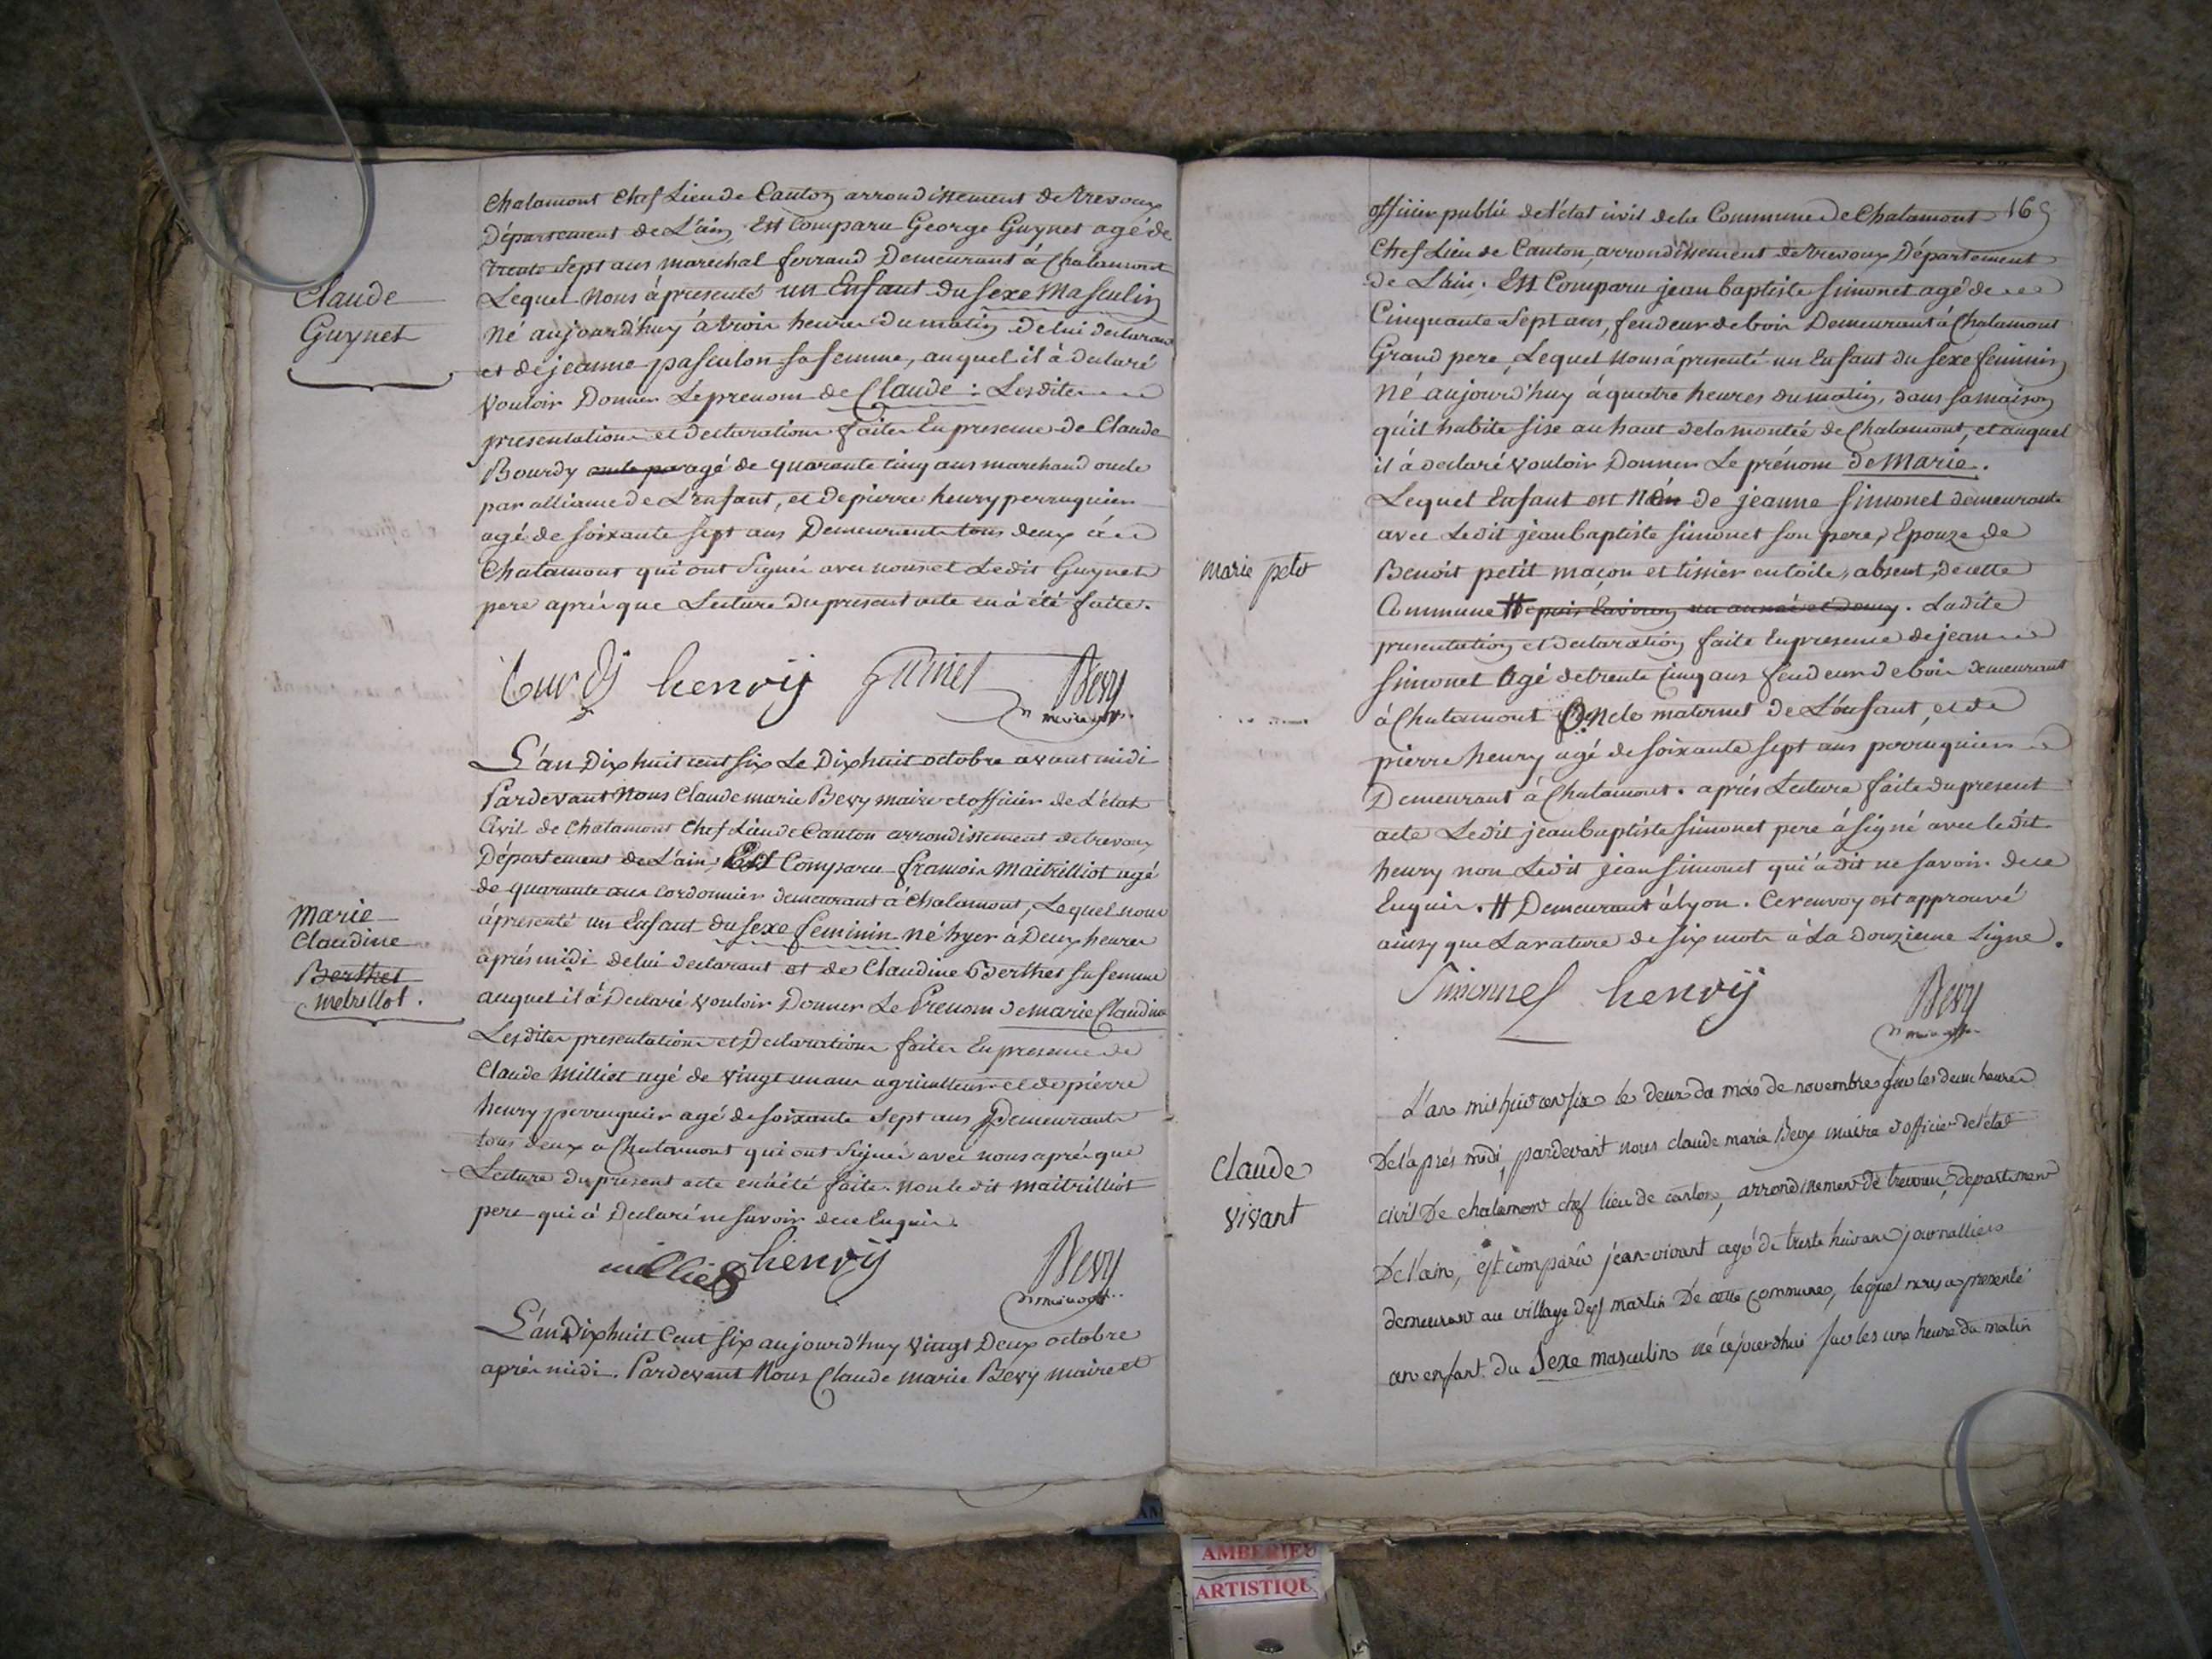 Chalamont Chef Lieu de Canton arrondissement de trevoux
Département de L'ain, Est Comparu George Guynet agé de
trente Sept ans marechal ferrand Demeurant à Chalamont
Claude
Guynet
Lequel Nous à presenté un Enfant du Sexe Masculin
Né aujourd'huy à trois heures du matin de lui declarant
et de jeanne pasculon sa femme, auquel il à declaré
Vouloir Donner Le prenom de Claude : Lesdites
presentation et declaration faites En presence de Claude
Bourdy agé de quarante cinq ans marchand oncle
par alliance de L'enfant, et de pierre henry perruquier
agé de soixante sept ans Demeurants tous deux à
Chalamont qui ont signés avec nous et Ledit Guynet
pere après que Lecture du present acte en à été faite.
Bourdy henrij guinet Bevy
L'an Dix huit cent six Le Dix huit octobre avant midi
Pardevant Nous Claude marie Bevy maire et officier de L'état
Civil de Chalamont Chef Lieu de Canton arrondissement de trevoux
Département de L'ain, Est Comparu francois Maitrilliot agé
de quarante ans cordonnier demeurant à Chalamont, Lequel nous
à presenté un Enfant du Sexe feminin né hyer à Deux heures
Marie
Claudine
Berthet
metrillot.
après midi de lui declarant et de Claudine Berthet sa femme
auquel il à Declaré vouloir Donner Le Prenom de marie Claudine
Lesdites presentation et Declaration faites En presence de
Claude Milliet agé de vingt un ans agriculteur et de pierre
henry perruquier agé de soixante sept ans Demeurants
tous deux a Chalamont qui ont signés avec nous après que
Lecture du present acte en à été faite. non ledit Maitrilliot
pere qui à Declaré ne savoir de ce Enquis.
milliet henrij Bevy
L'an Dix huit Cent six aujourd'huy vingt Deux octobre
après midi. Pardevant Nous Claude marie Bevy maire et
officier public de l'état civil de la Commune de Chalamont 165
Chef Lieu de Canton, arrondissement de trevoux Département
de L'ain. Est Comparu jean baptiste simonet agé de
Cinquante Sept ans, fendeur de bois Demeurant à Chalamont
Grand pere, Lequel Nous à presenté un Enfant du sexe feminin
Né aujourd'huy à quatre heures du matin, dans sa maison
qu'il habite sise au haut de la montée de Chalamont, et auquel
il à declaré vouloir Donner Le prénom de Marie.
Lequel Enfant est Né de jeanne Simonet demeurante
avec Ledit jean baptiste simonet son pere, Epouze de
marie petit
Benoit petit maçon et tissier en toile, absent, de cette
Commune # depuis Environ un année et demy. Ladite
presentation et declaration faite En presence de jean
Simonet agé de trente cinq ans fendeur de bois demeurant
à Chalamont Oncle maternel de L'enfant, et de
pierre henry agé de soixante sept ans perruquier
Demeurant à Chalamont. après Lecture faite du present
acte Ledit jean baptiste simonet pere à signé avec ledit
henry non Ledit jean Simonet qui à dit ne savoir de ce
Enquis. # Demeurant à lyon. Ce renvoy est approuvé
ainsy que La rature de six mots à La douzieme Ligne.
Simonnet henrij Bevy
L'an mil huit cent six le deux du mois de novembre sur les deux heures
Claude
vivant
De l'après midi, pardevant nous claude marie Bevy maire et officier de l'état
civil De chalamont chef lieu de canton, arrondissement de trevoux, departement
De l'ain, est comparu jean vivant agé de trente huit ans journallier
demeurant au village de st martin De cette commune, lequel nous a presenté
un enfant du Sexe masculin né cejourdhui sur les une heure du matin
AMBERIEU
ARTISTIQU